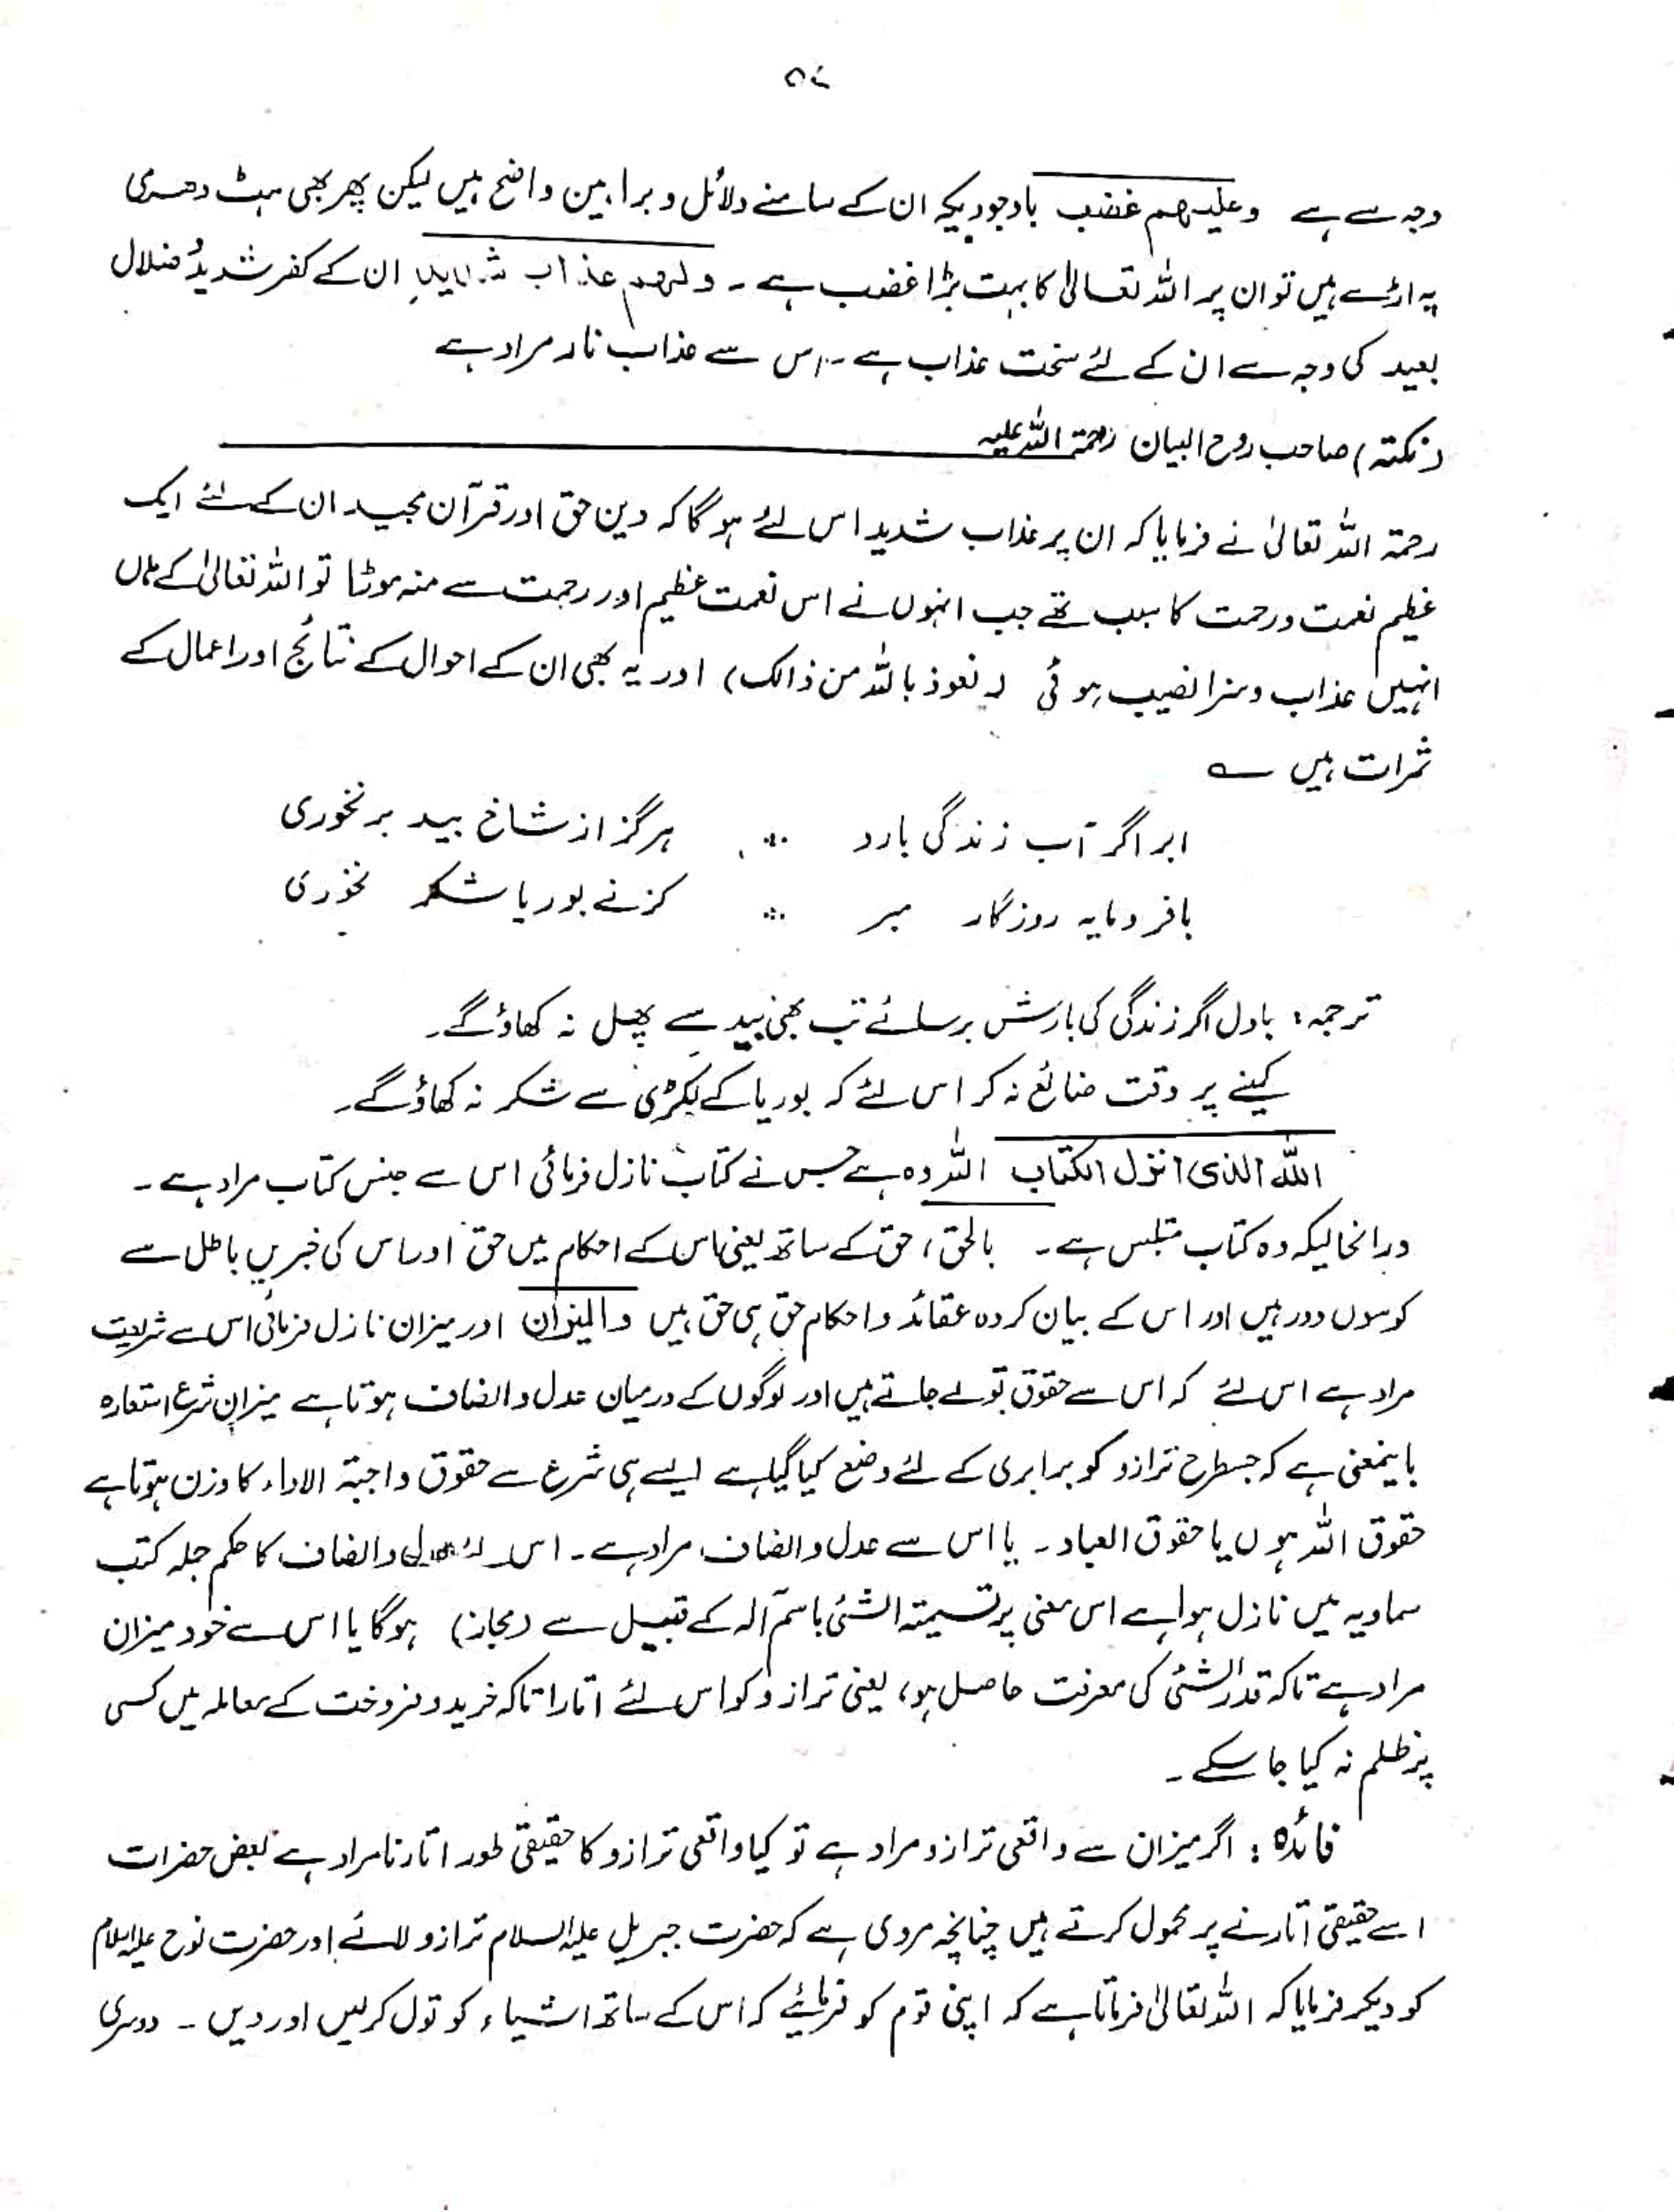 ۵۷
وجہ سے ہے وعلیھم غضب باوجودیکہ ان کے سامنے دلائل و براہین واضح ہیں لیکن پھر بھی ہٹ دھرمی
پہ اڑے ہیں تو ان پر اللہ تعالیٰ کا بہت بڑا غضب ہے ۔ ولھم عذاب شدید ان کے کفر شدید و ضلال
بعید کی وجہ سے ان کے لئے سخت عذاب ہے ۔ اس سے عذاب نار مراد ہے
(نکتہ) صاحب روح البیان رحمۃ اللہ علیہ
رحمۃ اللہ تعالیٰ نے فرمایا کہ ان پر عذاب شدید اس لئے ہو گا کہ دین حق اور قرآن مجید ان کے لئے ایک
عظیم نعمت و رحمت کا سبب تھے جب انہوں نے اس نعمت عظیم اور رحمت سے منہ موڑا تو اللہ تعالیٰ کے ہاں
انہیں عذاب و سزا نصیب ہوئی (نعوذ باللہ من ذالک) اور یہ بھی ان کے احوال کے نتائج اور اعمال کے
ثمرات ہیں ؎
ابر اگر آب زندگی بارد ∴ ہرگز از شاخ بید بر نخوری
با فرومایہ روزگار مبر ∴ کز نے بوریا شکر نخوری
ترجمہ: بادل اگر زندگی کی بارش برسائے تب بھی بید سے پھل نہ کھاؤ گے۔
کمینے پر وقت ضائع نہ کر اس لئے کہ بوریا کے لکڑی سے شکر نہ کھاؤ گے۔
اللہ الذی انزل الکتاب اللہ وہ ہے جس نے کتاب نازل فرمائی اس سے جنس کتاب مراد ہے ۔
درانحالیکہ وہ کتاب متلبس ہے ۔ بالحق، حق کے ساتھ یعنی اس کے احکام میں حق اور اس کی خبریں باطل سے
کوسوں دور ہیں اور اس کے بیان کردہ عقائد و احکام حق ہی حق ہیں والمیزان اور میزان نازل فرمائی اس سے شریعت
مراد ہے اس لئے کہ اس سے حقوق تولے جاتے ہیں اور لوگوں کے درمیان عدل و انصاف ہوتا ہے میزان شرع استعارہ
بایمعنی ہے کہ جسطرح ترازو کو برابری کے لئے وضع کیا گیا ہے ایسے ہی شرع سے حقوق واجبۃ الاداء کا وزن ہوتا ہے
حقوق اللہ ہوں یا حقوق العباد ۔ یا اس سے عدل و انصاف مراد ہے ۔ اس لئے عدل و انصاف کا حکم جملہ کتب
سماویہ میں نازل ہوا ہے اس معنی پر تسمیتہ الشئی باسم آلہ کے قبیل سے (مجاز) ہوگا یا اس سے خود میزان
مراد ہے تاکہ قدر الشئی کی معرفت حاصل ہو، یعنی ترازو کو اس لئے اتارا تاکہ خرید و فروخت کے معاملہ میں کسی
پر ظلم نہ کیا جا سکے ۔
فائدہ: اگر میزان سے واقعی ترازو مراد ہے تو کیا واقعی ترازو کا حقیقی طور اتارنا مراد ہے بعض حضرات
اسے حقیقی اتارنے پر محمول کرتے ہیں چنانچہ مروی ہے کہ حضرت جبریل علیہ السلام ترازو لائے اور حضرت نوح علیہ السلام
کو دیکر فرمایا کہ اللہ تعالیٰ فرماتا ہے کہ اپنی قوم کو فرمائیے کہ اس کے ساتھ اشیاء کو تول کر لیں اور دیں ۔ دوسری